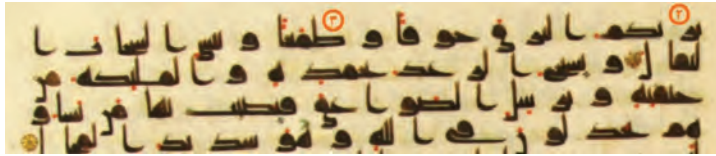 ٢ ٣
يريكم البرق خوفا و طمعا و ينشى السحاب ا
لثقال و يسبح الرعد بحمده و المليكه من
خيفته و يرسل الصوعق فيصيب بها من يشا و
هم يجدلون في الله و هو شديد المحال